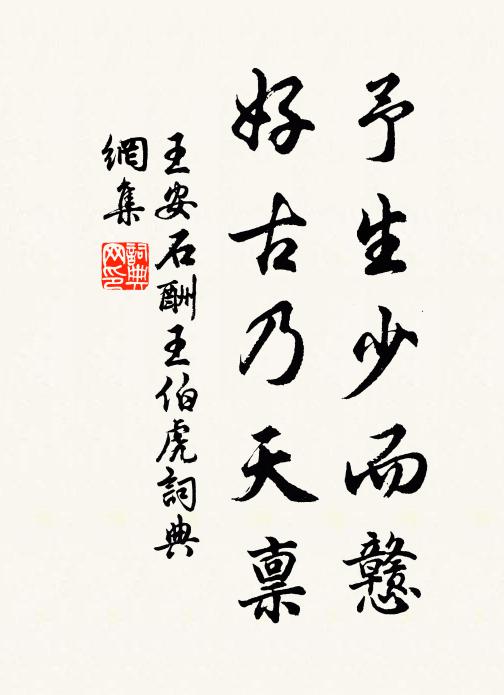 予生少而戇
好古乃天禀
王安石酬王伯虎詞典
網集
詞典
网印